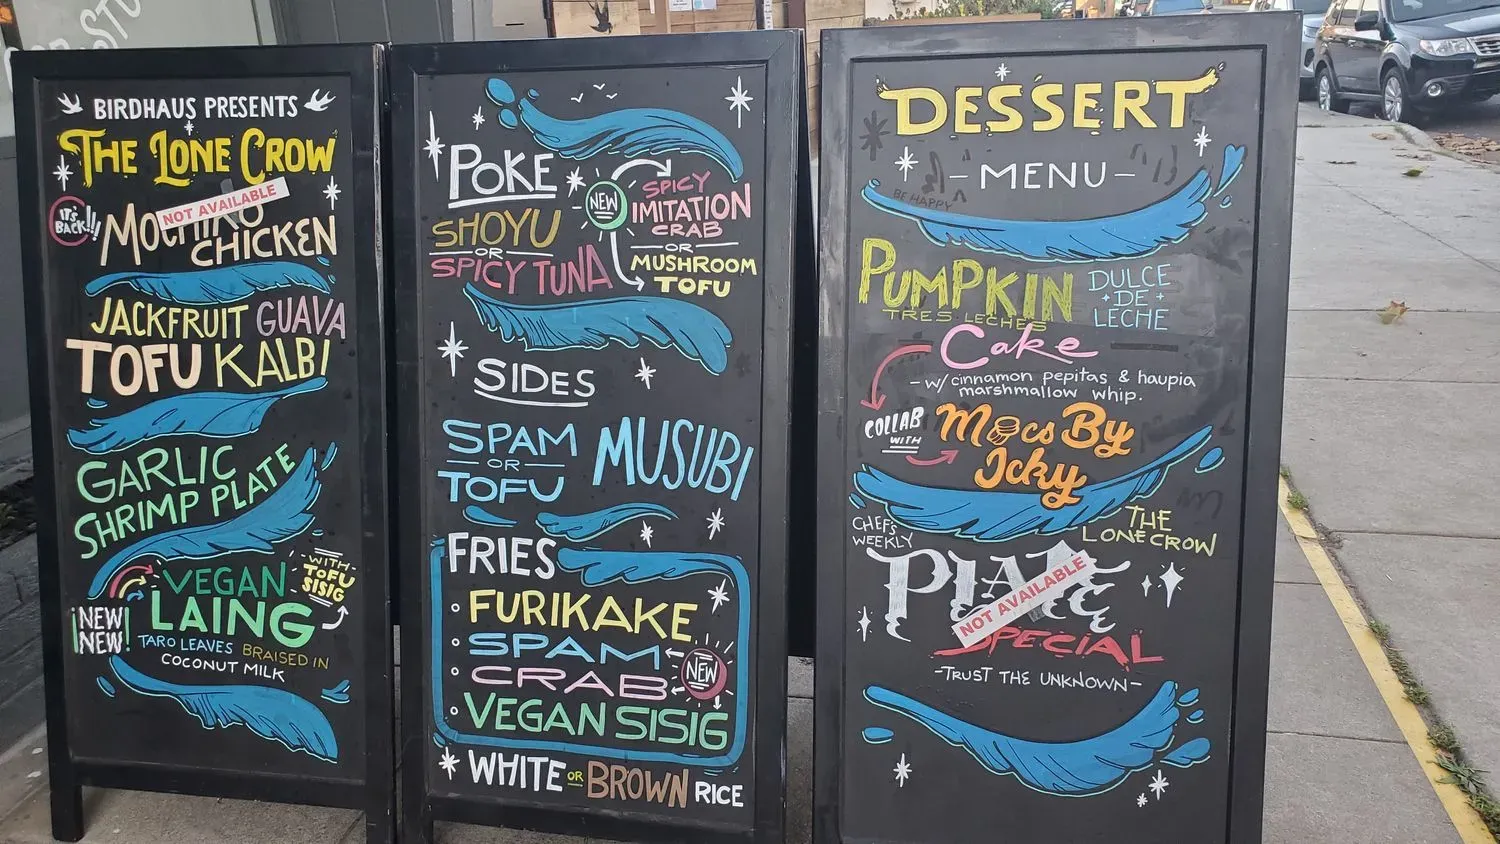 BIRDHAUS PRESENTS
THE LONE CROW
NOT AVAILABLE
IT'S
BACK!!!
MOCHIKO
CHICKEN
JACKFRUIT GUAVA
TOFU KALBI
GARLIC
SHRIMP PLATE
NEW
NEW!
VEGAN
LAING
WITH
TOFU
SISIG
TARO LEAVES BRAISED IN
COCONUT MILK
POKE
SHOYU
OR
SPICY TUNA
NEW
SPICY
IMITATION
CRAB
OR
MUSHROOM
TOFU
SIDES
SPAM
OR
TOFU
MUSUBI
FRIES
FURIKAKE
SPAM
CRAB
NEW
VEGAN SISIG
WHITE OR BROWN RICE
DESSERT
MENU
BE HAPPY
PUMPKIN
TRES LECHES
DULCE
DE
LECHE
Cake
- w/ cinnamon pepitas & haupia
marshmallow whip.
COLLAB
WITH
Mocs By
Icky
CHEF'S
WEEKLY
THE
LONE CROW
PLATE
NOT AVAILABLE
SPECIAL
- TRUST THE UNKNOWN -